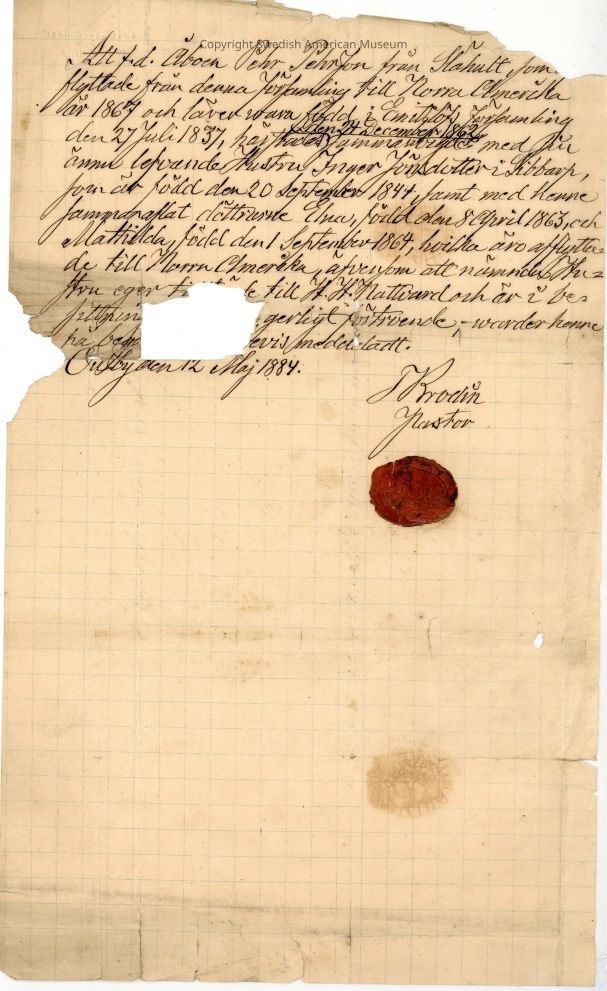 Copyright Swedish American Museum
Att f.d. Åboen Pehr Pehrson från Slähult, som
flyttade från denna församling till Norra Amerika
år 1867 och lärer vara född i Emitslöfs församling
den 27 Juli 1837, har
den December 1862
sammanvigts med sin
ännu lefvande Hustru Inger Jönsdotter i Sibbarp,
som är född den 20 September 1844, samt med henne
sammanaflat döttrarne Elna, född den 8 April 1863, och
Mathilda, född den 1 September 1864, hvilka äro afflytta-
de till Norra Amerika, äfvensom att nämnda Hu-
stru eger till H. H. Nattvard och är i be-
sittning gerligt förtroende, warder henne
på bevis meddeladt.
den 12 Maj 1884.
Brodin
Pastor